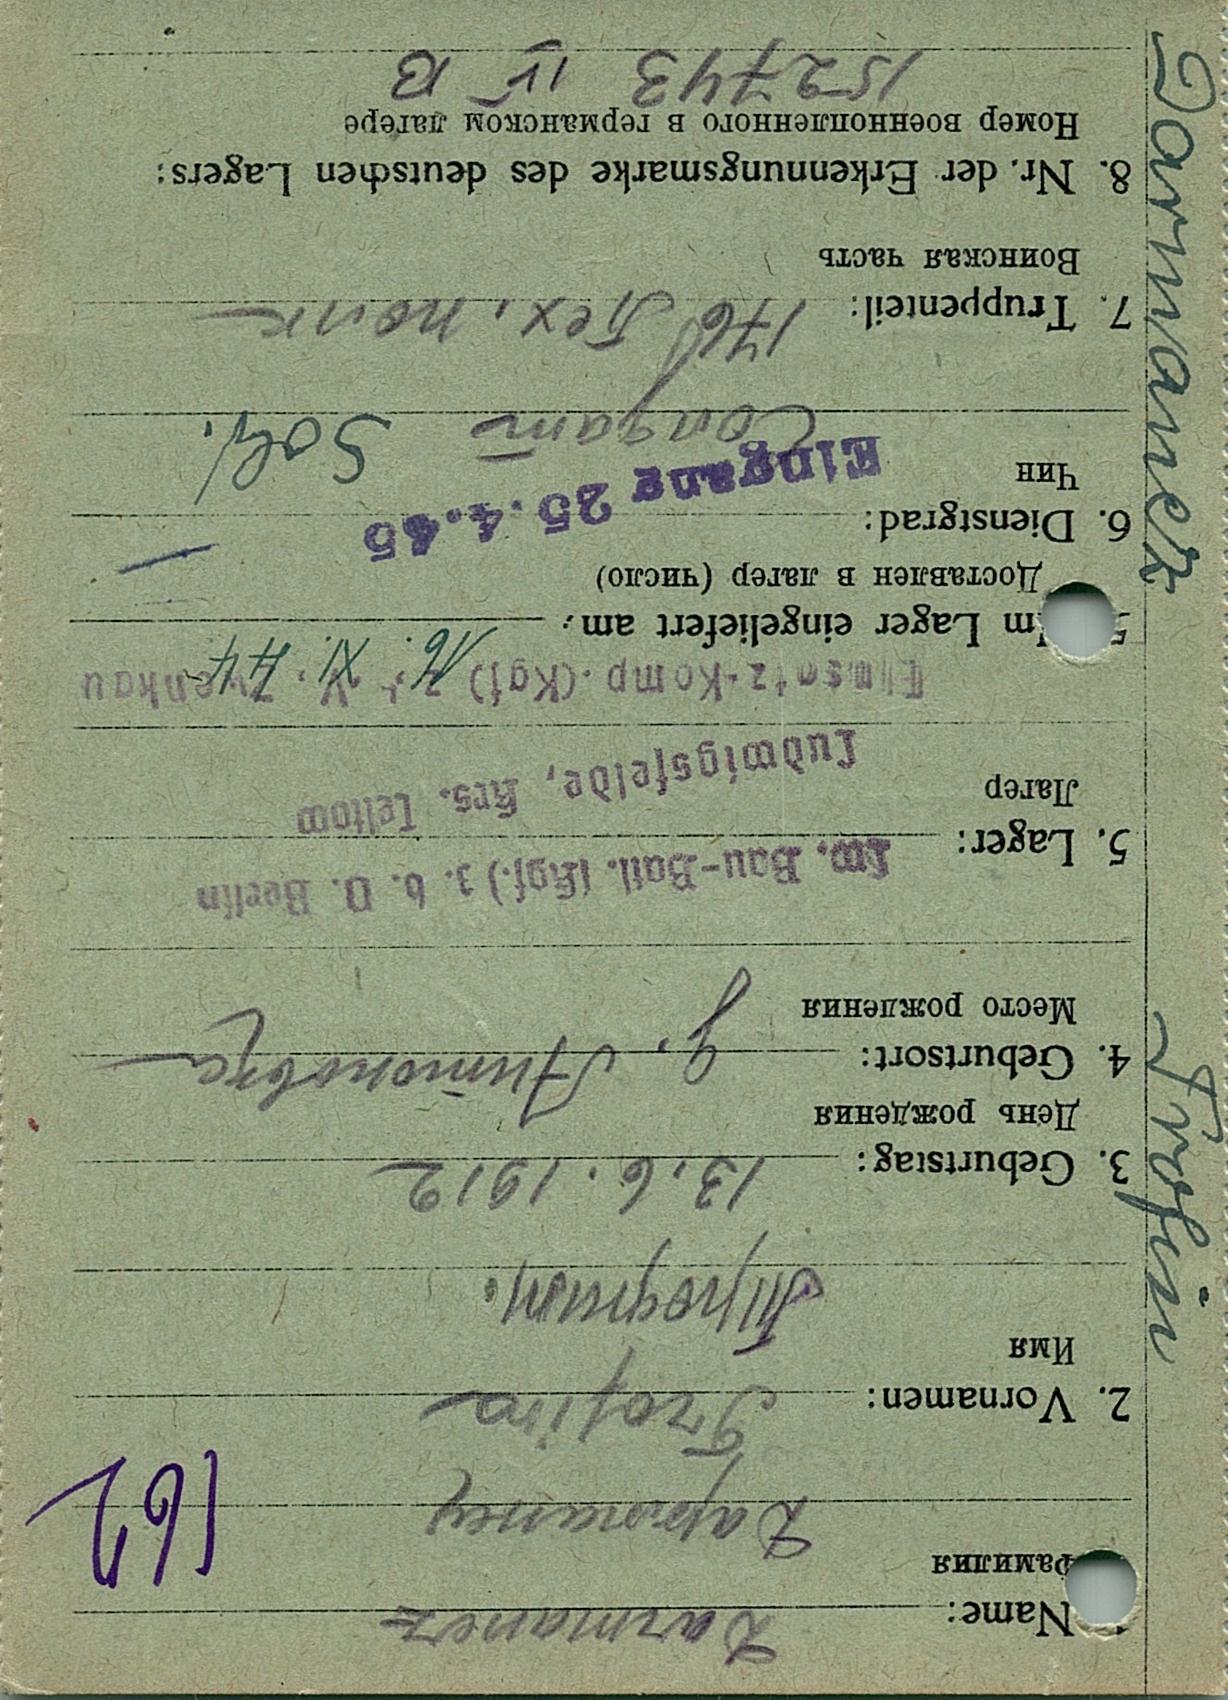 Darmanez Trofin
Name: Darmanez
Фамилия
Дарманец
162
2. Vornamen: Trofin
Имя
Трофим.
3. Geburtstag: 13.6.1912
День рождения
4. Geburtsort:
Место рождения
5. Lager: Lw. Bau-Batl. (Kgf.) z. b. V. Berlin
Лагер
Ludwigsfelde, Krs. Teltow
Einsatz-Komp. (Kgf) z. b. V. Zwenkau
Im Lager eingeliefert am: 16. XI. 44
Доставлен в лагер (число)
6. Dienstgrad: Eingang 25.4.45
Чин
Солдат Sold.
7. Truppenteil: 176 Пех. полк
Воинская часть
8. Nr. der Erkennungsmarke des deutschen Lagers:
Номер военнопленного в германском лагере
152743 IV B